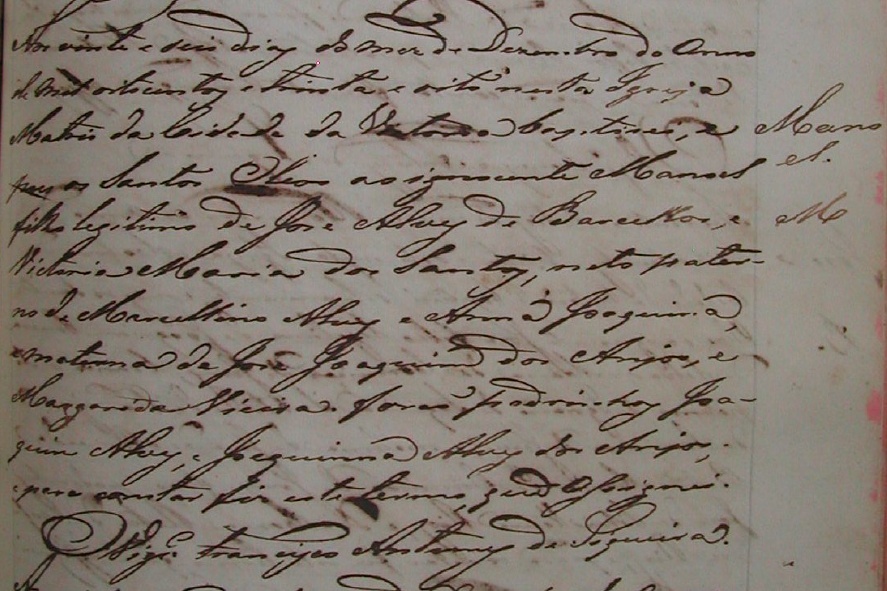 Aos vinte e seis dias do mez de Dezembro do Anno
de mil oitocentos e trinta e oito nesta Igreja
Matris da Cidade da Victoria baptisei, e Mano
pus os Santos Olios ao ignocente Manoel el.
filho legitimo de Jose Alvez de Barcellos, e M
Victoria Maria dos Santos, neto pater-
no de Marcellino Alvez e Anna Joaquina,
e materna de Jose Joaquim dos Anjos, e
Margarida Vieira. forão padrinhos Joa-
quim Alvez, e Joaquinna Alvez dos Anjos,
e para constar fis este termo, que assignei.
O Vigr.º Francisco Antunes de Siqueira.